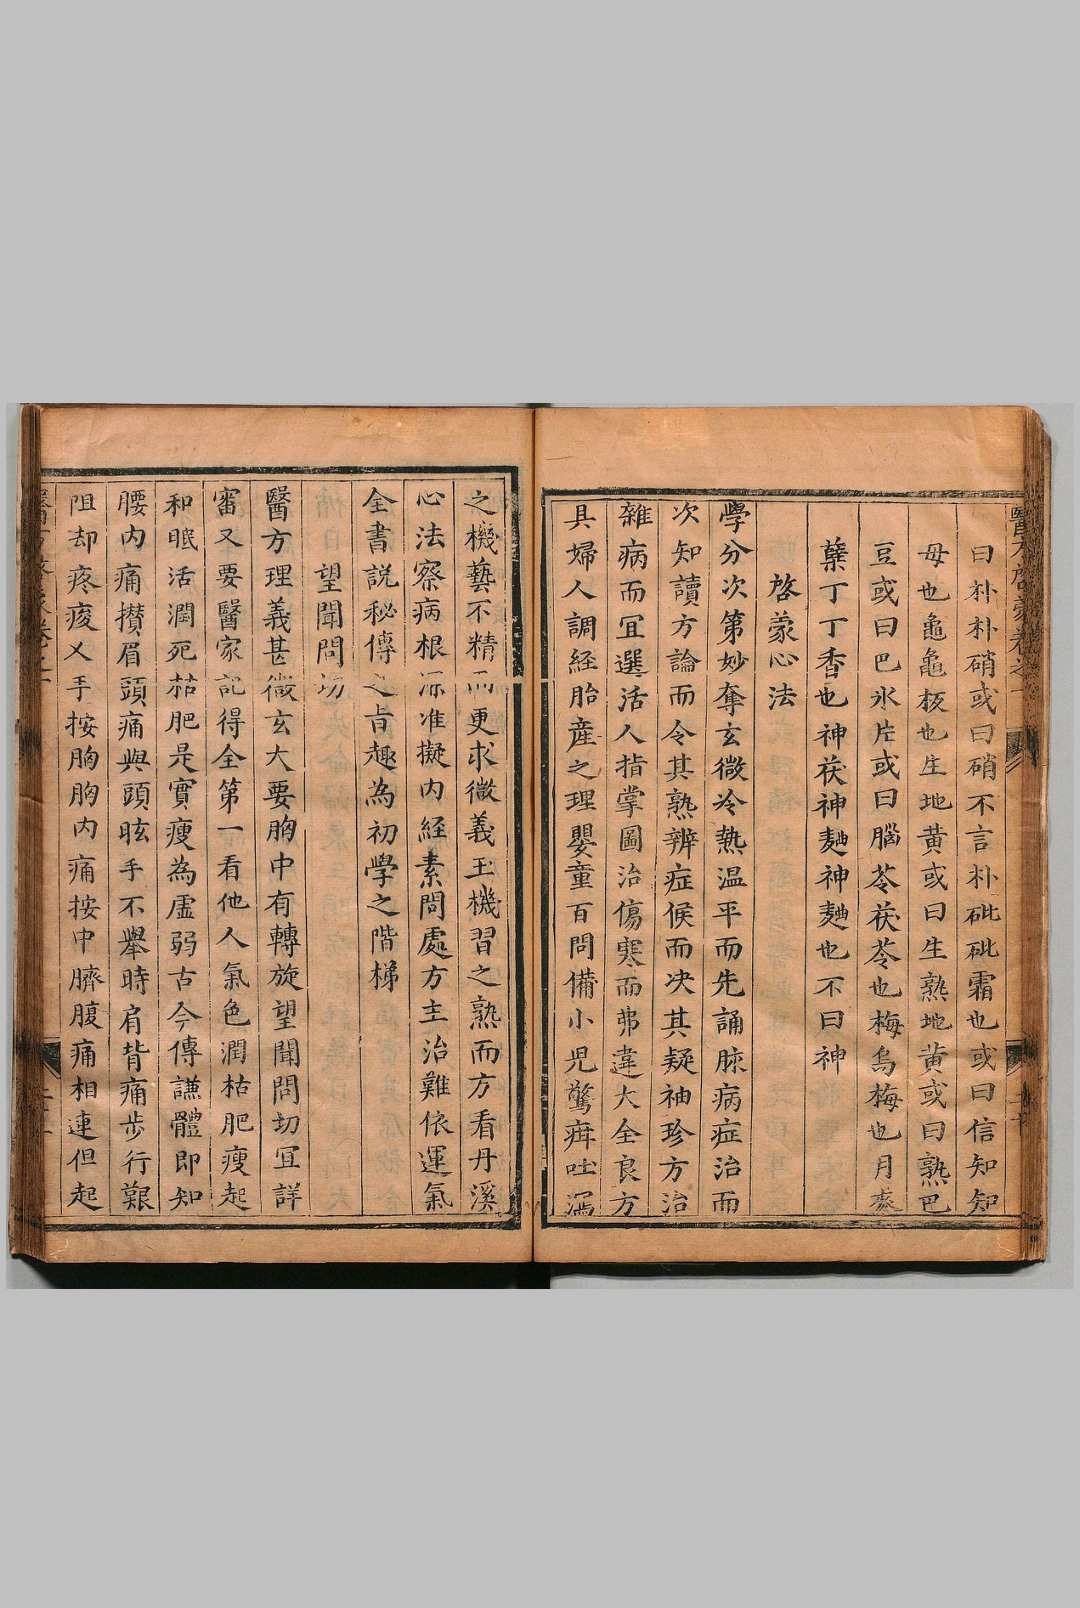 曰朴朴硝或曰硝不言朴砒砒霜也或曰信知知
母也龜龜板也生地黄或曰生熟地黄或曰熟巴
豆或曰巴氷片或曰腦苓茯苓也梅烏梅也月
蘗丁丁香也神茯神麯神麯也不曰神
啓蒙心法
學分次第妙奪玄微冷熱温平而先誦脉病症治而
次知讀方論而令其熟辨症候而决其疑袖珍方治
雜病而冝選活人指掌圖治傷寒而弗違大全良方
具婦人調経胎産之理嬰童百問備小児驚疳吐瀉
之機藝不精而更求微義玉機習之熟而方看丹溪
心法察病根源准擬内經素問處方主治難依運氣
全書説秘傳之旨趣為初學之階梯
望聞問切
醫方理義甚微玄大要胸中有轉旋望聞問切冝詳
審又要醫家記得全第一看他人氣色潤枯肥瘦起
和眠活潤死枯肥是實瘦為虚弱古今傳謙體即知
腰内痛攅眉頭痛與頭眩手不舉時肩背痛歩行艱
阻却疼痠乂手按胸胸内痛按中臍腹痛相連但起